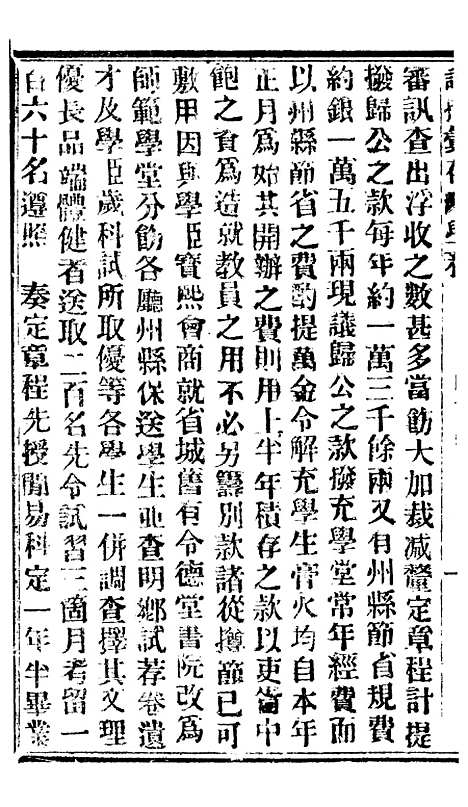 審訊查出浮收之數甚多當飭大加裁減釐定章程計提
撥歸公之款每年約一萬三千餘兩又有州縣節省規費
約銀一萬五千兩現議歸公之款撥充學堂常年經費而
以州縣節省之費酌提萬金令解充學生膏火均自本年
正月爲始其開辦之費則用上半年積存之款以吏胥中
飽之資爲造就教員之用不必另籌別款諸從撙節已可
敷用因與學臣寶熙會商就省城舊有令德堂書院改爲
師範學堂分飭各廳州縣保送學生並查明鄉試荐卷遺
才及學臣歲科試所取優等各學生一併調查擇其文理
優長品端體健者送取二百名先令試習三箇月考留一
百六十名遵照 奏定章程先授簡易科定一年半畢業